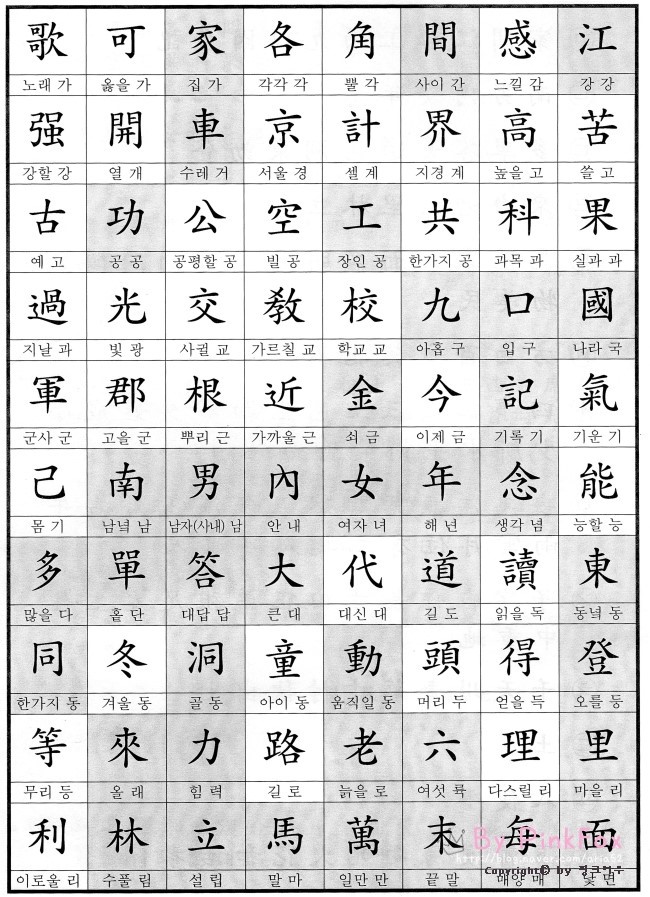 歌 可 家 各 角 間 感 江
노래 가 옳을 가 집 가 각각 각 뿔 각 사이 간 느낄 감 강 강
强 開 車 京 計 界 高 苦
강할 강 열 개 수레 거 서울 경 셀 계 지경 계 높을 고 쓸 고
古 功 公 空 工 共 科 果
예 고 공 공 공평할 공 빌 공 장인 공 한가지 공 과목 과 실과 과
過 光 交 敎 校 九 口 國
지날 과 빛 광 사귈 교 가르칠 교 학교 교 아홉 구 입 구 나라 국
軍 郡 根 近 金 今 記 氣
군사 군 고을 군 뿌리 근 가까울 근 쇠 금 이제 금 기록 기 기운 기
己 南 男 內 女 年 念 能
몸 기 남녘 남 남자(사내) 남 안 내 여자 녀 해 년 생각 념 능할 능
多 單 答 大 代 道 讀 東
많을 다 홑 단 대답 답 큰 대 대신 대 길 도 읽을 독 동녘 동
同 冬 洞 童 動 頭 得 登
한가지 동 겨울 동 골 동 아이 동 움직일 동 머리 두 얻을 득 오를 등
等 來 力 路 老 六 理 里
무리 등 올 래 힘 력 길 로 늙을 로 여섯 륙 다스릴 리 마을 리
利 林 立 馬 萬 末 每 面
By PinkFox
이로울 리 수풀 림 설 립 말 마 일만 만 끝 말 매양 매 낯 면
Copyright© by 핑크여우